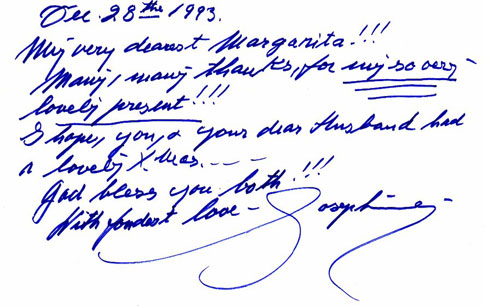 Dec 28ths 1993.
My very dearest Margarita!!!
Many, many thanks, for my so very
lovely present!!!
I hope, you, & your dear Husband had
a lovely X-mas. ----
God bless you both!!!
With fondest love -
Josephine